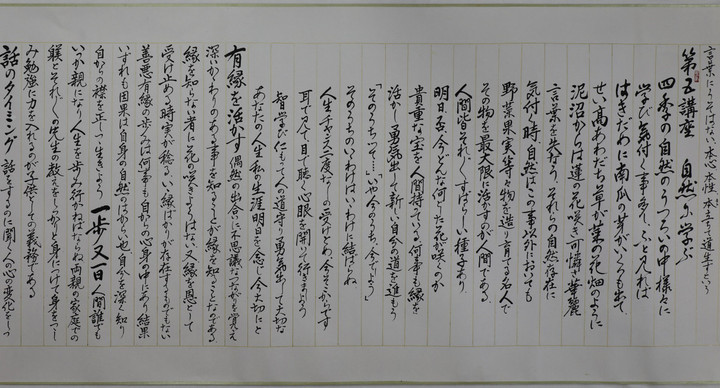 言葉にうそはない、本心本性 本立ちて道生ずという
第五講座 自然に学ぶ
四季の自然のうつろいの中 様々に
学び気付く事多く ふと見れば
はきだめに南瓜の芽がいくつも出て
せい高あわだち草が菜の花畑のように
泥沼からは蓮の花咲き可憐か華麗
言葉を失なう、それらの自然存在に
気付く時、自然はこの事以外においても
野菜果実等々物を造り育てる名人で
その物を最大限に活かすのが人間である
人間皆それぞれすばらしい種子あり
明日否、今どんな何んの花が咲くのか
貴重な宝を人間持っている何事も縁を
活かし勇気出して新しい自分の道を進もう
「そのうちって…」いや今のうち、今でしょう
そのうちのいわれはいわけに結ばらぬ
人生チャンス二度なし一度の受けとめ、今きっかけです
耳で見て目で聴く心眼を開いて行きましょう
智学び仁もって人の道守り勇気出して大切な
あなたの人生私の生涯明日を念じ今大切にと
有縁を活かす 偶然の出合に不思議なつながりを覚え
深いかかわりのある事を知ることが縁を知ることなのである
縁を知らない者に花咲きようはない、又縁を恩として
受け止める時実が稔る、いい縁ばかりが存在するものでもない
善悪有縁の歩みは何事も自からの心身の中にあり結果
いずれも因果は自身の自然のはからい也自分を深く知り
自からの襟を正して生きよう 一歩又一日 人間誰でも
いつか親になり人生を歩み行かねばならぬ両親の家庭での
躾とそれぞれの先生の教えをしっかりと身につけて身をつくし
み勉強に力を入れるのが子供としての義務である
話のタイミング 話をするのに聞く人の心の変化をしっ